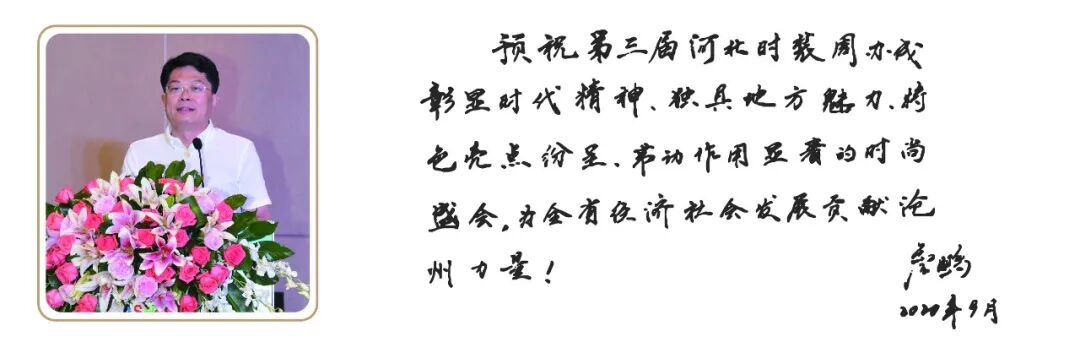 预祝第三届河北时装周办成
彰显时代精神、独具地方魅力、特
色亮点纷呈、带动作用显著的时尚
盛会,为全省经济社会发展贡献沧
州力量!
2020年9月